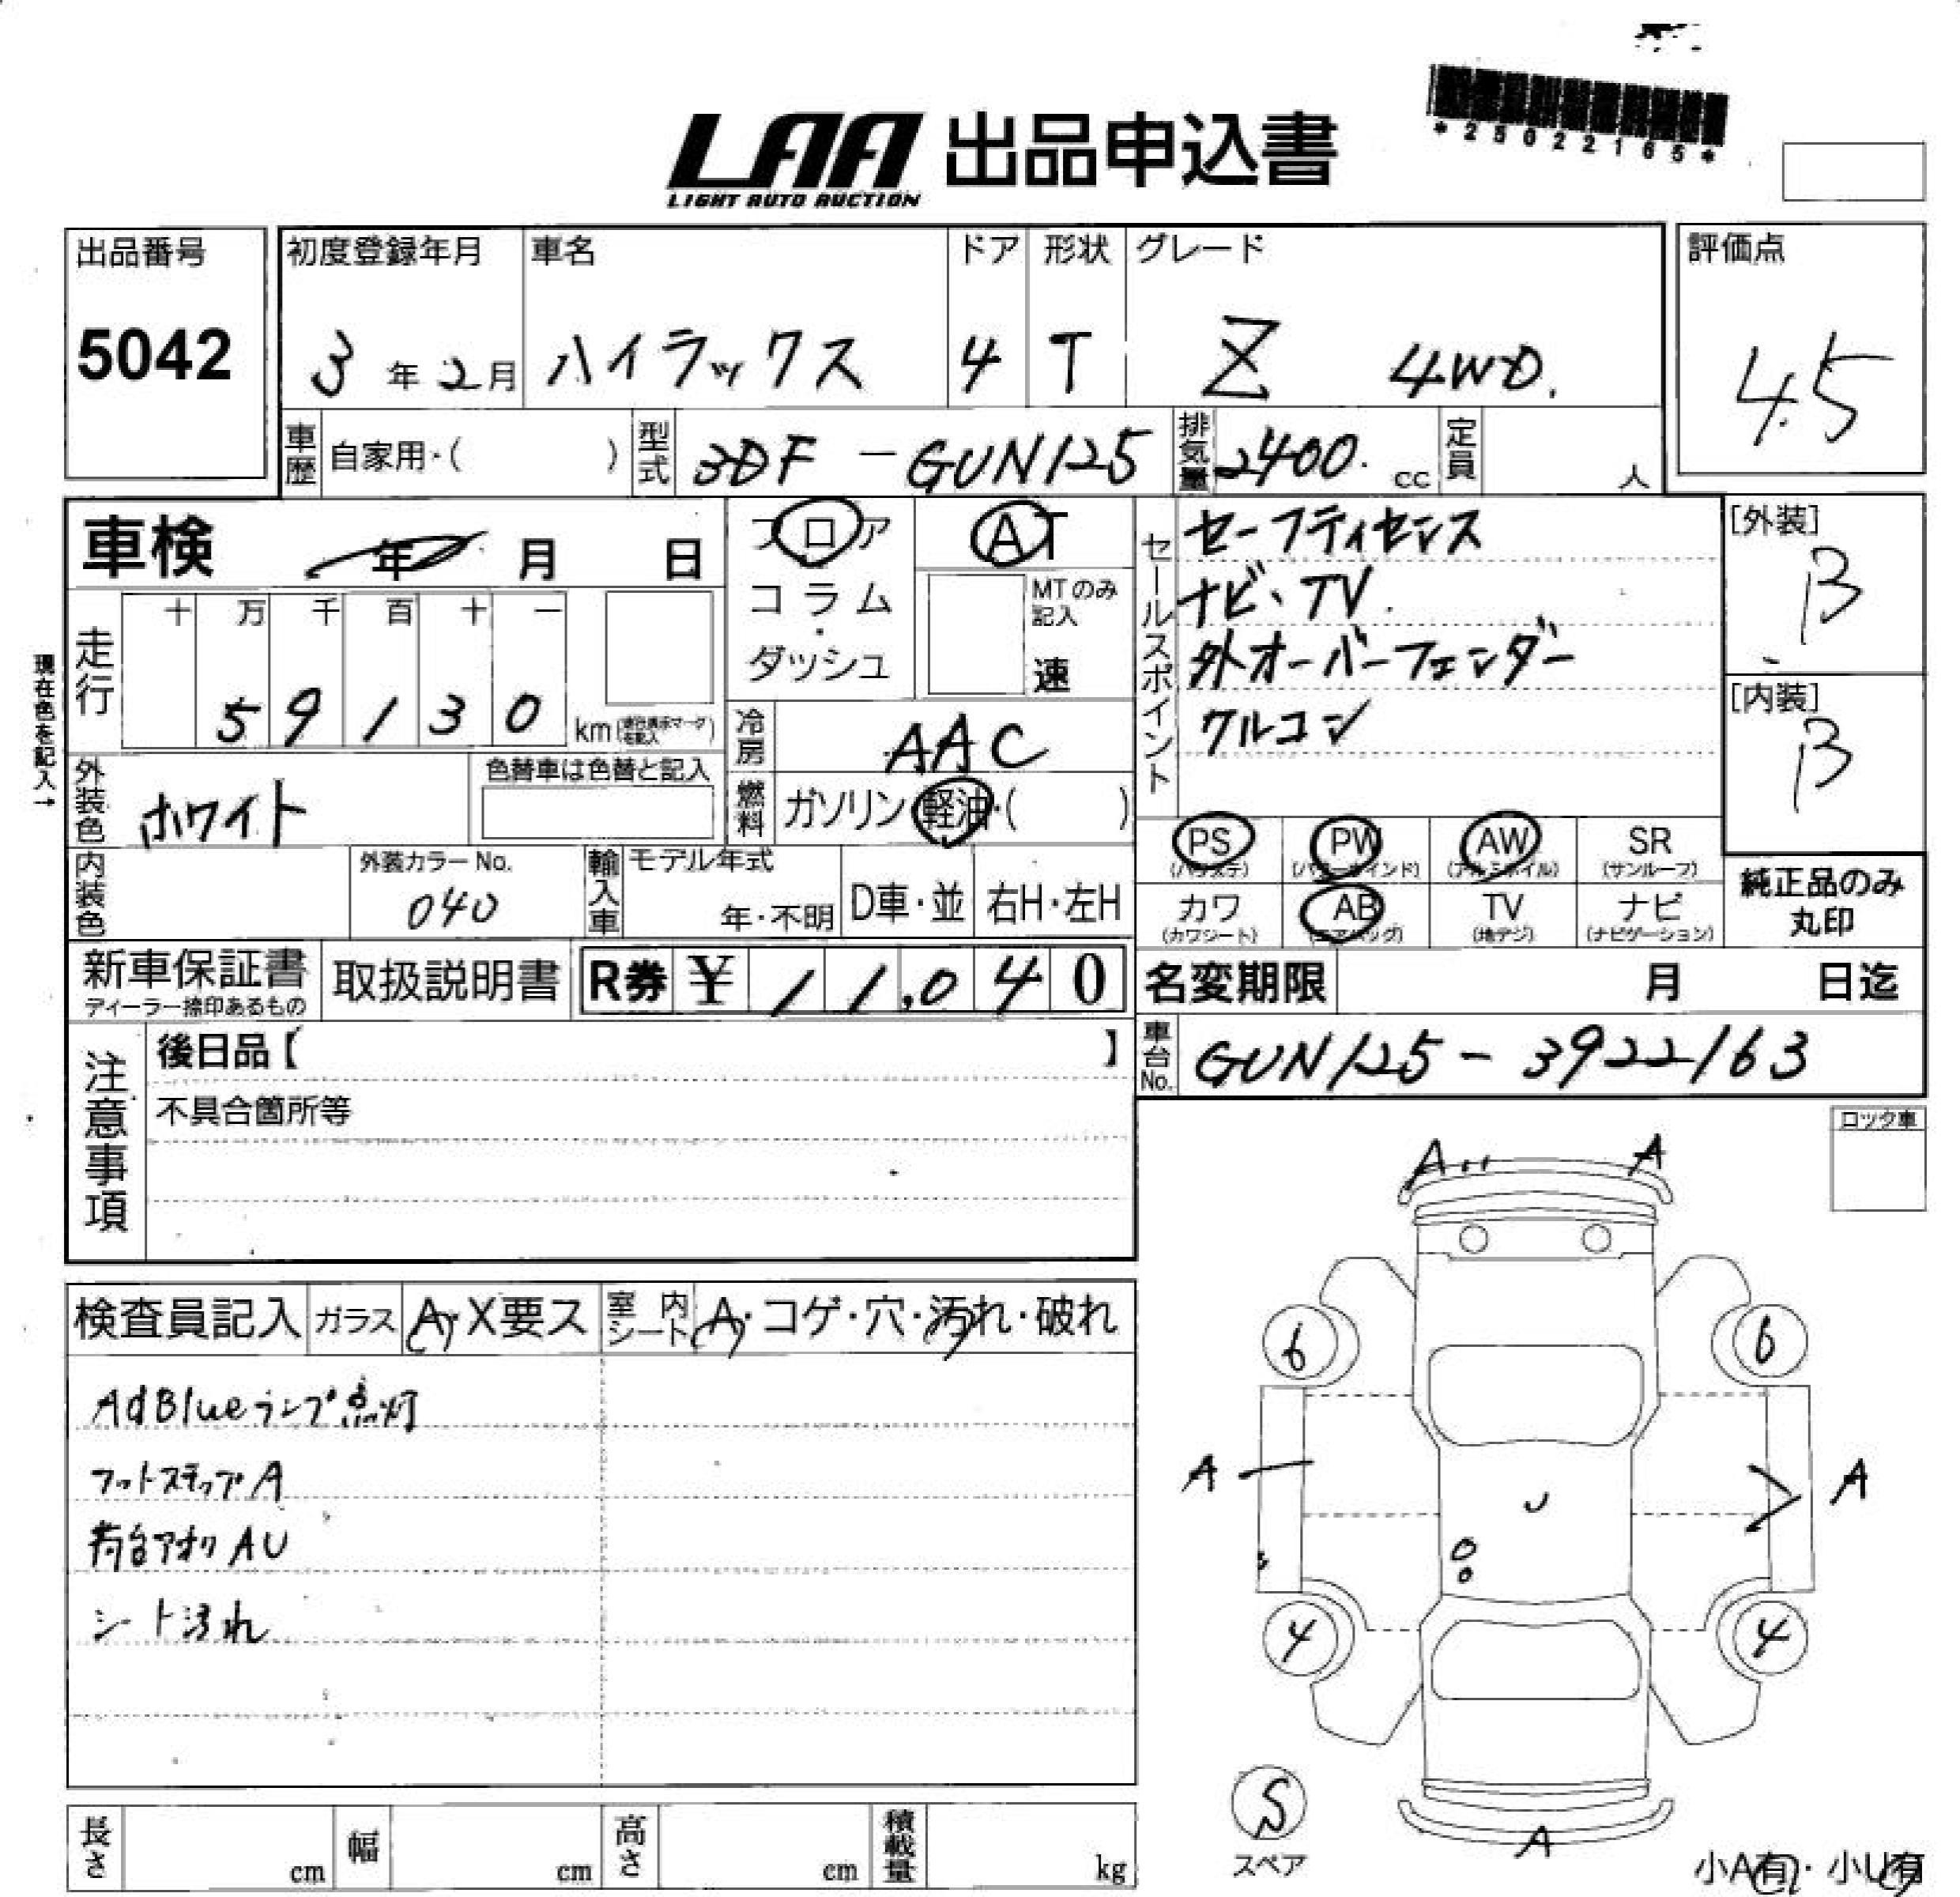 *25022165*
LAA 出品申込書
LIGHT AUTO AUCTION
出品番号 初度登録年月 車名 ドア 形状 グレード 評価点
5042 3年2月 ハイラックス 4 T Z 4WD. 4.5
車歴 自家用・( ) 型式 3DF-GUN125 排気量 2400. cc 定員 人
車検 年 月 日 フロア AT
コラム・ダッシュ MTのみ記入 速
セールスポイント
セーフティセンス
ナビ、TV.
外オーバーフェンダー
クルコン
[外装] B
[内装] B
現在色を記入→
走行 十 万 千 百 十 一
59130 km
冷房 AAC
外装色 ホワイト 色替車は色替と記入
燃料 ガソリン・軽油・( )
内装色 外装カラーNo. 040 輸入車 モデル年式 年・不明 D車・並 右H・左H
PS (パワステ) PW (パワーウインド) AW (アルミホイル) SR (サンルーフ)
カワ (カワシート) AB (エアバッグ) TV (地デジ) ナビ (ナビゲーション)
純正品のみ丸印
新車保証書 ディーラー捺印あるもの 取扱説明書 R券 ¥11,040
名変期限 月 日迄
車台No. GUN125-3922163
注意事項
後日品【 】
不具合箇所等
ロック車
検査員記入 ガラス A・X要ス 室内シート A・コゲ・穴・汚れ・破れ
AdBlueランプ点灯
フットステップA
荷台アオリAU
シート汚れ
A A
6 6
A A
4 4
S
スペア
A
小A有・小U有
長さ cm 幅 cm 高さ cm 積載量 kg